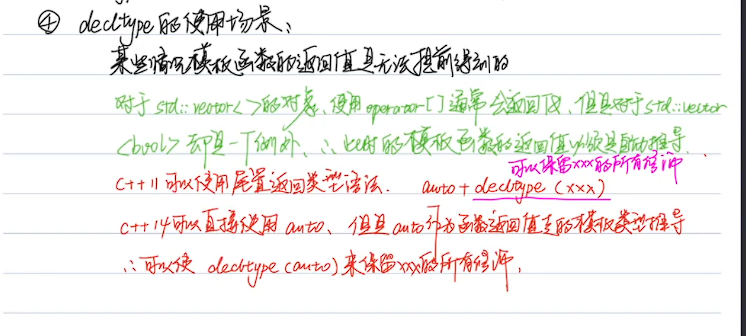 ④ decltype的使用场景:
某些情况模板函数的返回值是无法提前得到的
对于std::vector<>的对象、使用operator[]通常会返回T&、但是对于std::vector
<bool>却是一个例外、∴此时的模板函数的返回值必须是自动推导.
可以保留xxx的所有修饰
C++11可以使用尾置返回类型语法. auto + decltype(xxx)
C++14可以直接使用auto、但是auto作为函数返回值走的模板类型推导
∴可以使decltype(auto)来保留xxx的所有修饰.